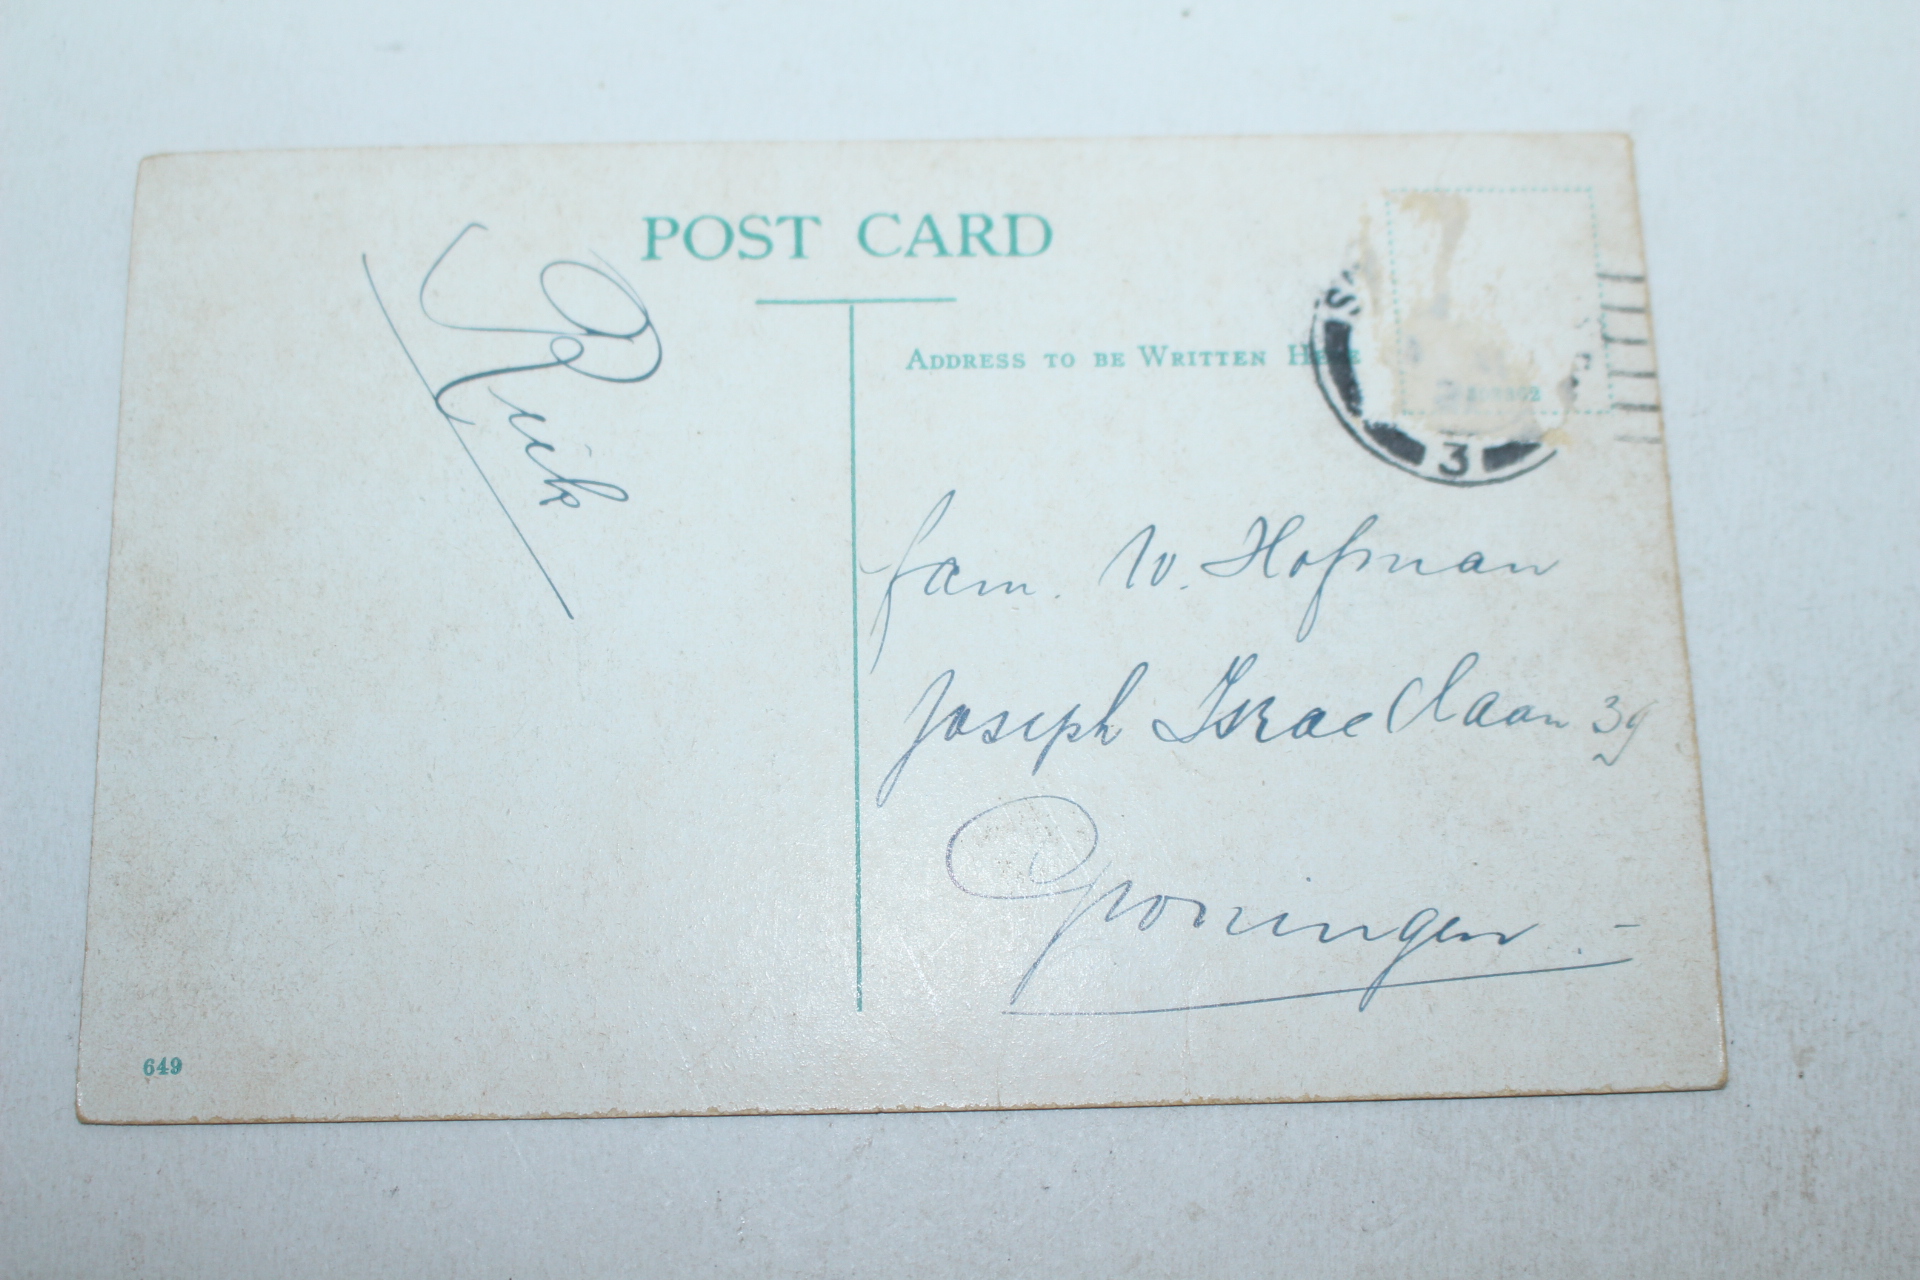 POST CARD
Rick
ADDRESS TO BE WRITTEN HERE
S
3
fam. W. Hofman
Joseph Israelslaan 39
Groningen .–
649